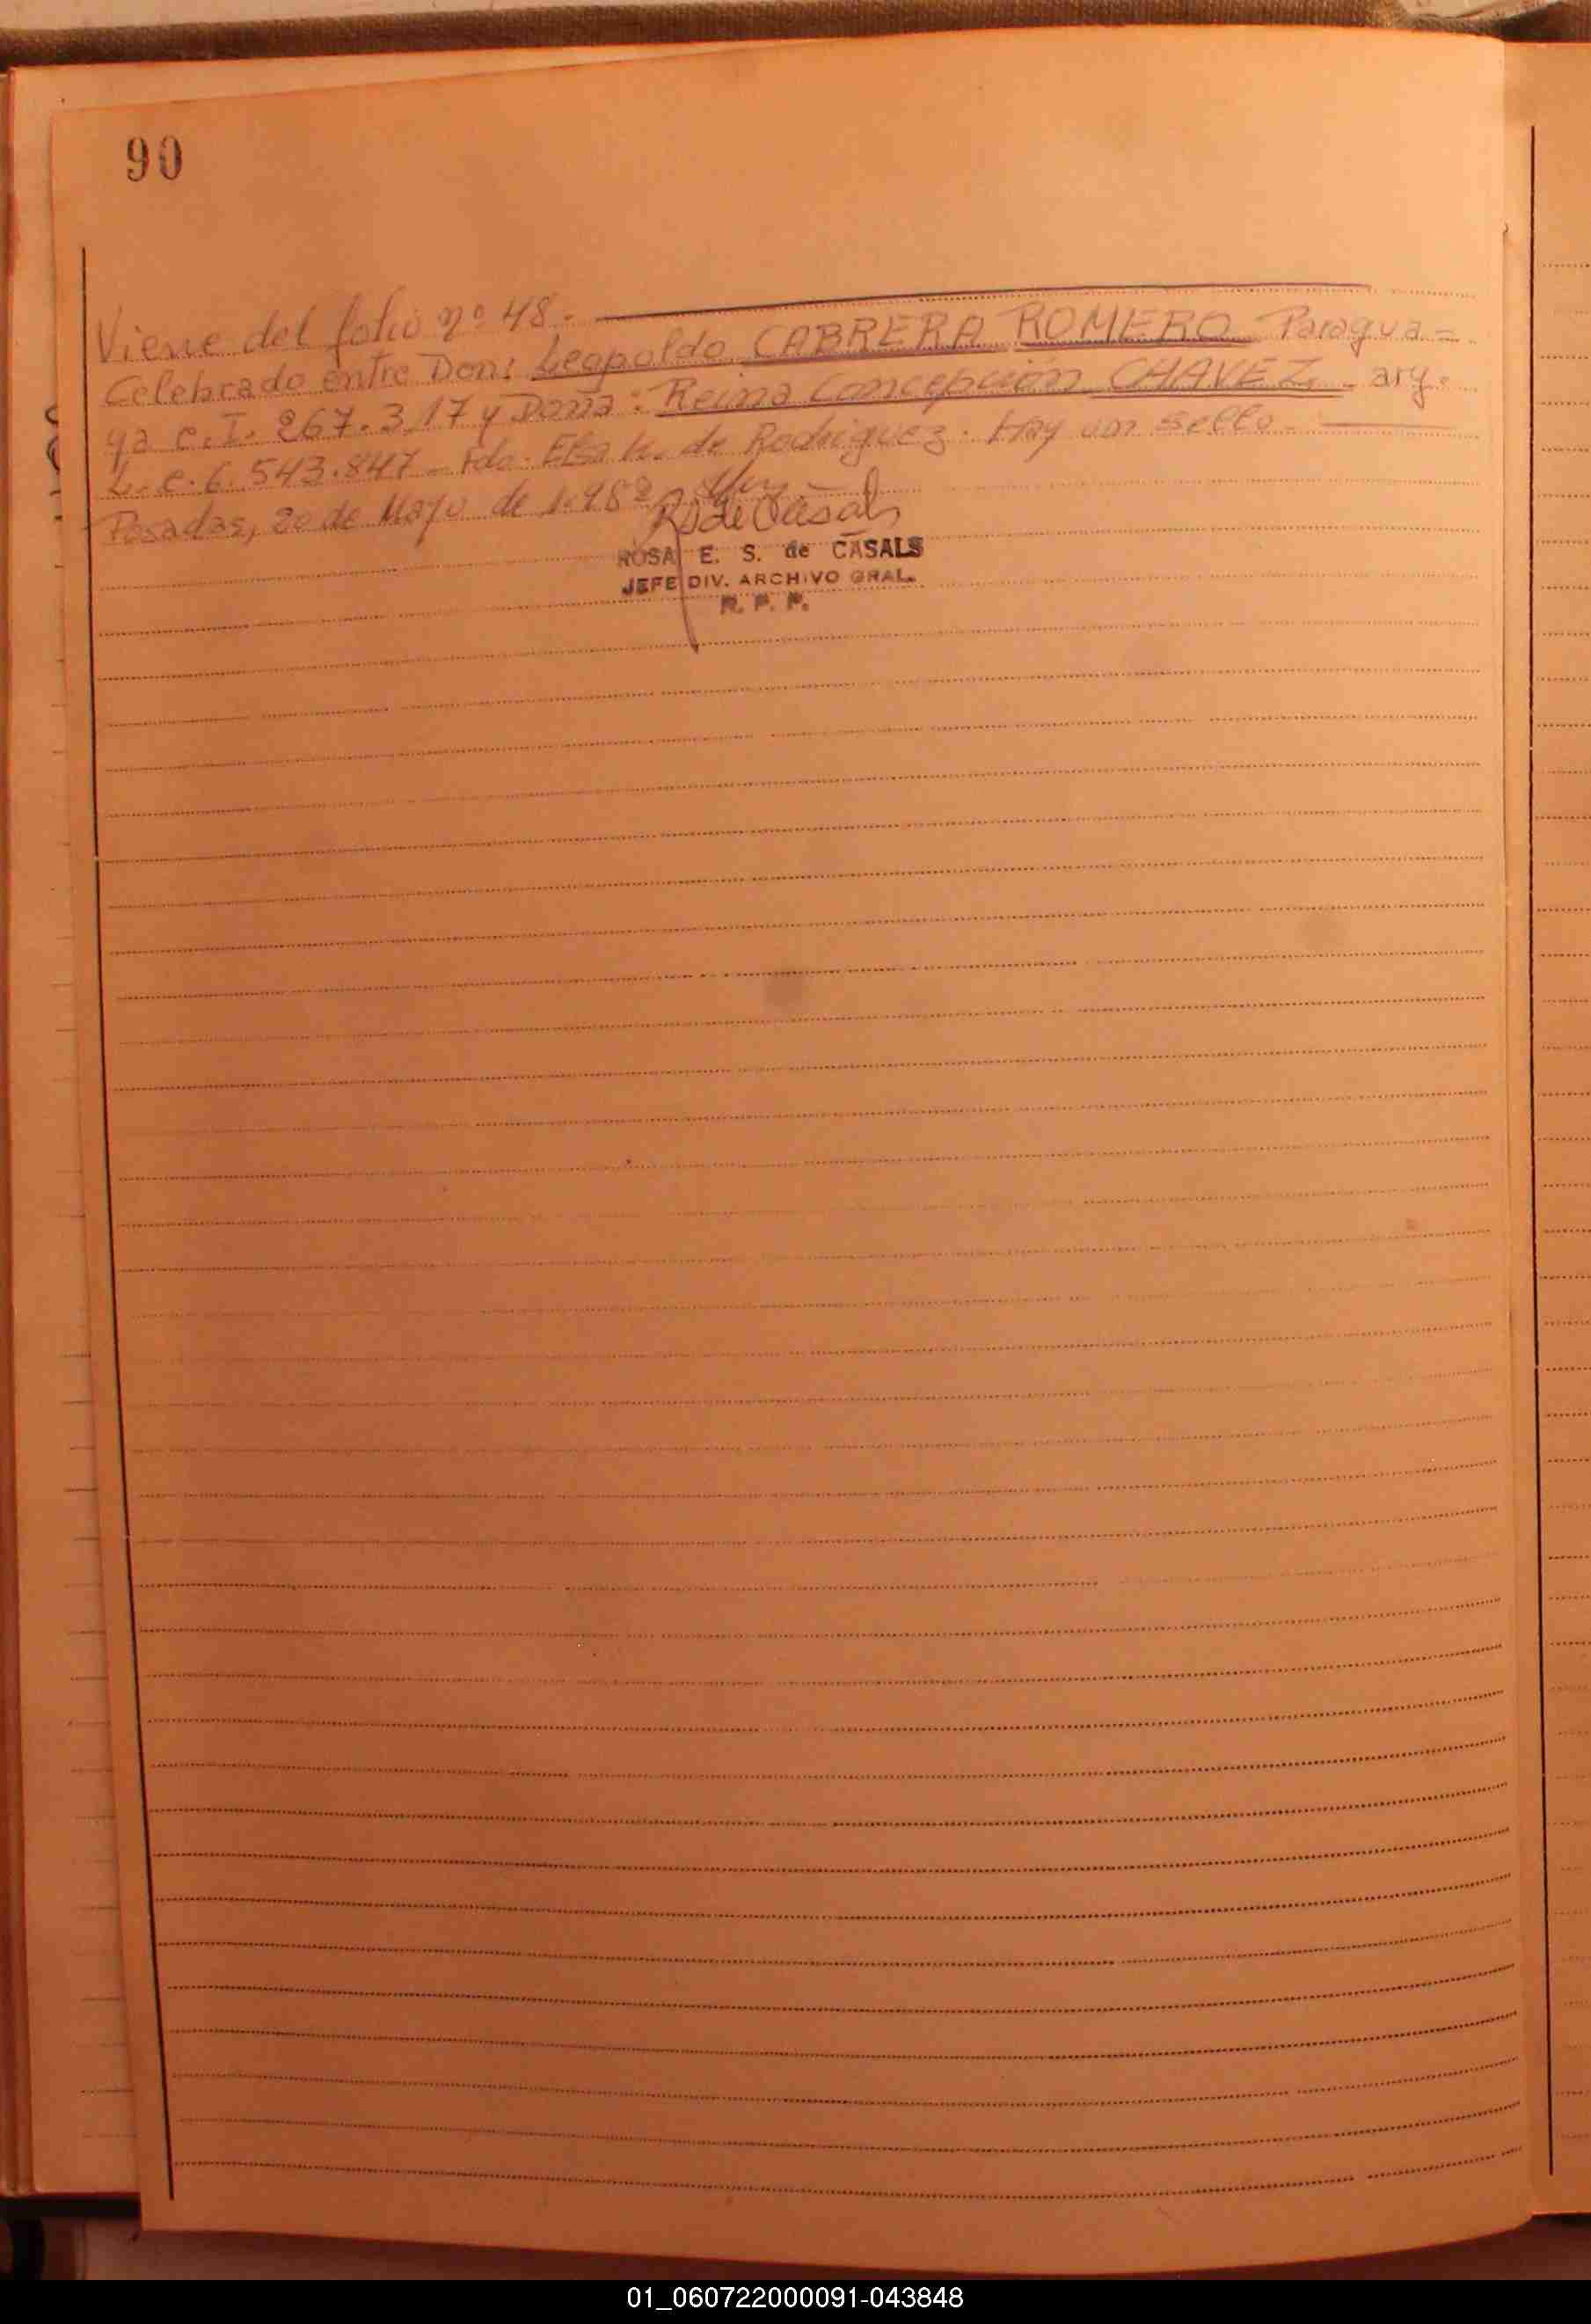 90
Viene del folio nº 48.-
Celebrado entre Don: Leopoldo CABRERA ROMERO Paragua=
ya C.I. 267.317 y Doña: Reina Concepción CHAVEZ - arg.
L.C. 6.543.847 - Fdo. Elsa K. de Rodriguez. Hay un sello.
Posadas, 20 de Mayo de 1.98
R S de Casals
ROSA E. S. de CASALS
JEFE DIV. ARCHIVO GRAL.
R. P. P.
01_060722000091-043848